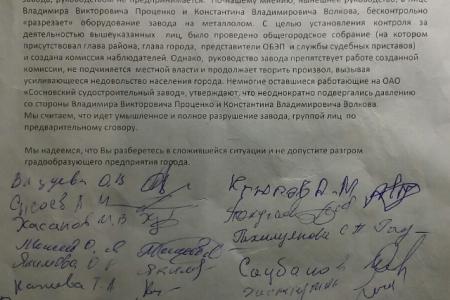 завода, руководством не предпринимается. По нашему мнению, нынешнее руководство, в лице
Владимира Викторовича Проценко и Константина Владимировича Волкова, бесконтрольно
«разрезает» оборудование завода на металлолом. С целью установления контроля за
деятельностью вышеуказанных лиц, было проведено общегородское собрание (на котором
присутствовал глава района, глава города, представители ОБЭП и службы судебных приставов)
и создана комиссия наблюдателей. Однако, руководство завода препятствует работе созданной
комиссии, не подчиняется местной власти и продолжает творить произвол, вызывая
усиливающееся недовольство населения города. Немногие оставшиеся работающие на ОАО
«Сосновский судостроительный завод», утверждают, что неоднократно подвергались давлению
со стороны Владимира Викторовича Проценко и Константина Владимировича Волкова.
Мы считаем, что идет умышленное и полное разрушение завода, группой лиц по
предварительному сговору.
Мы надеемся, что Вы разберетесь в сложившейся ситуации и не допустите разгром
градообразующего предприятия города.
О.В.
Сысоев А И
Хасанов М.В
О. А
Якимова О
Т.А